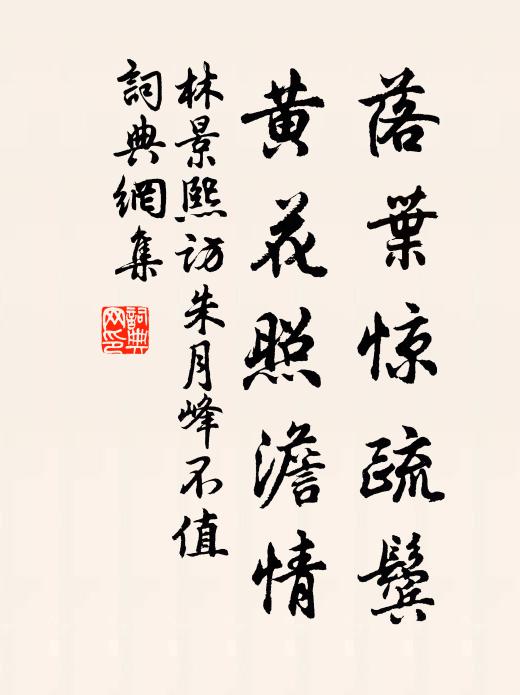 落葉惊疏鬓
黄花照澹情
林景熙访朱月峰不值
詞典網集
詞典网印